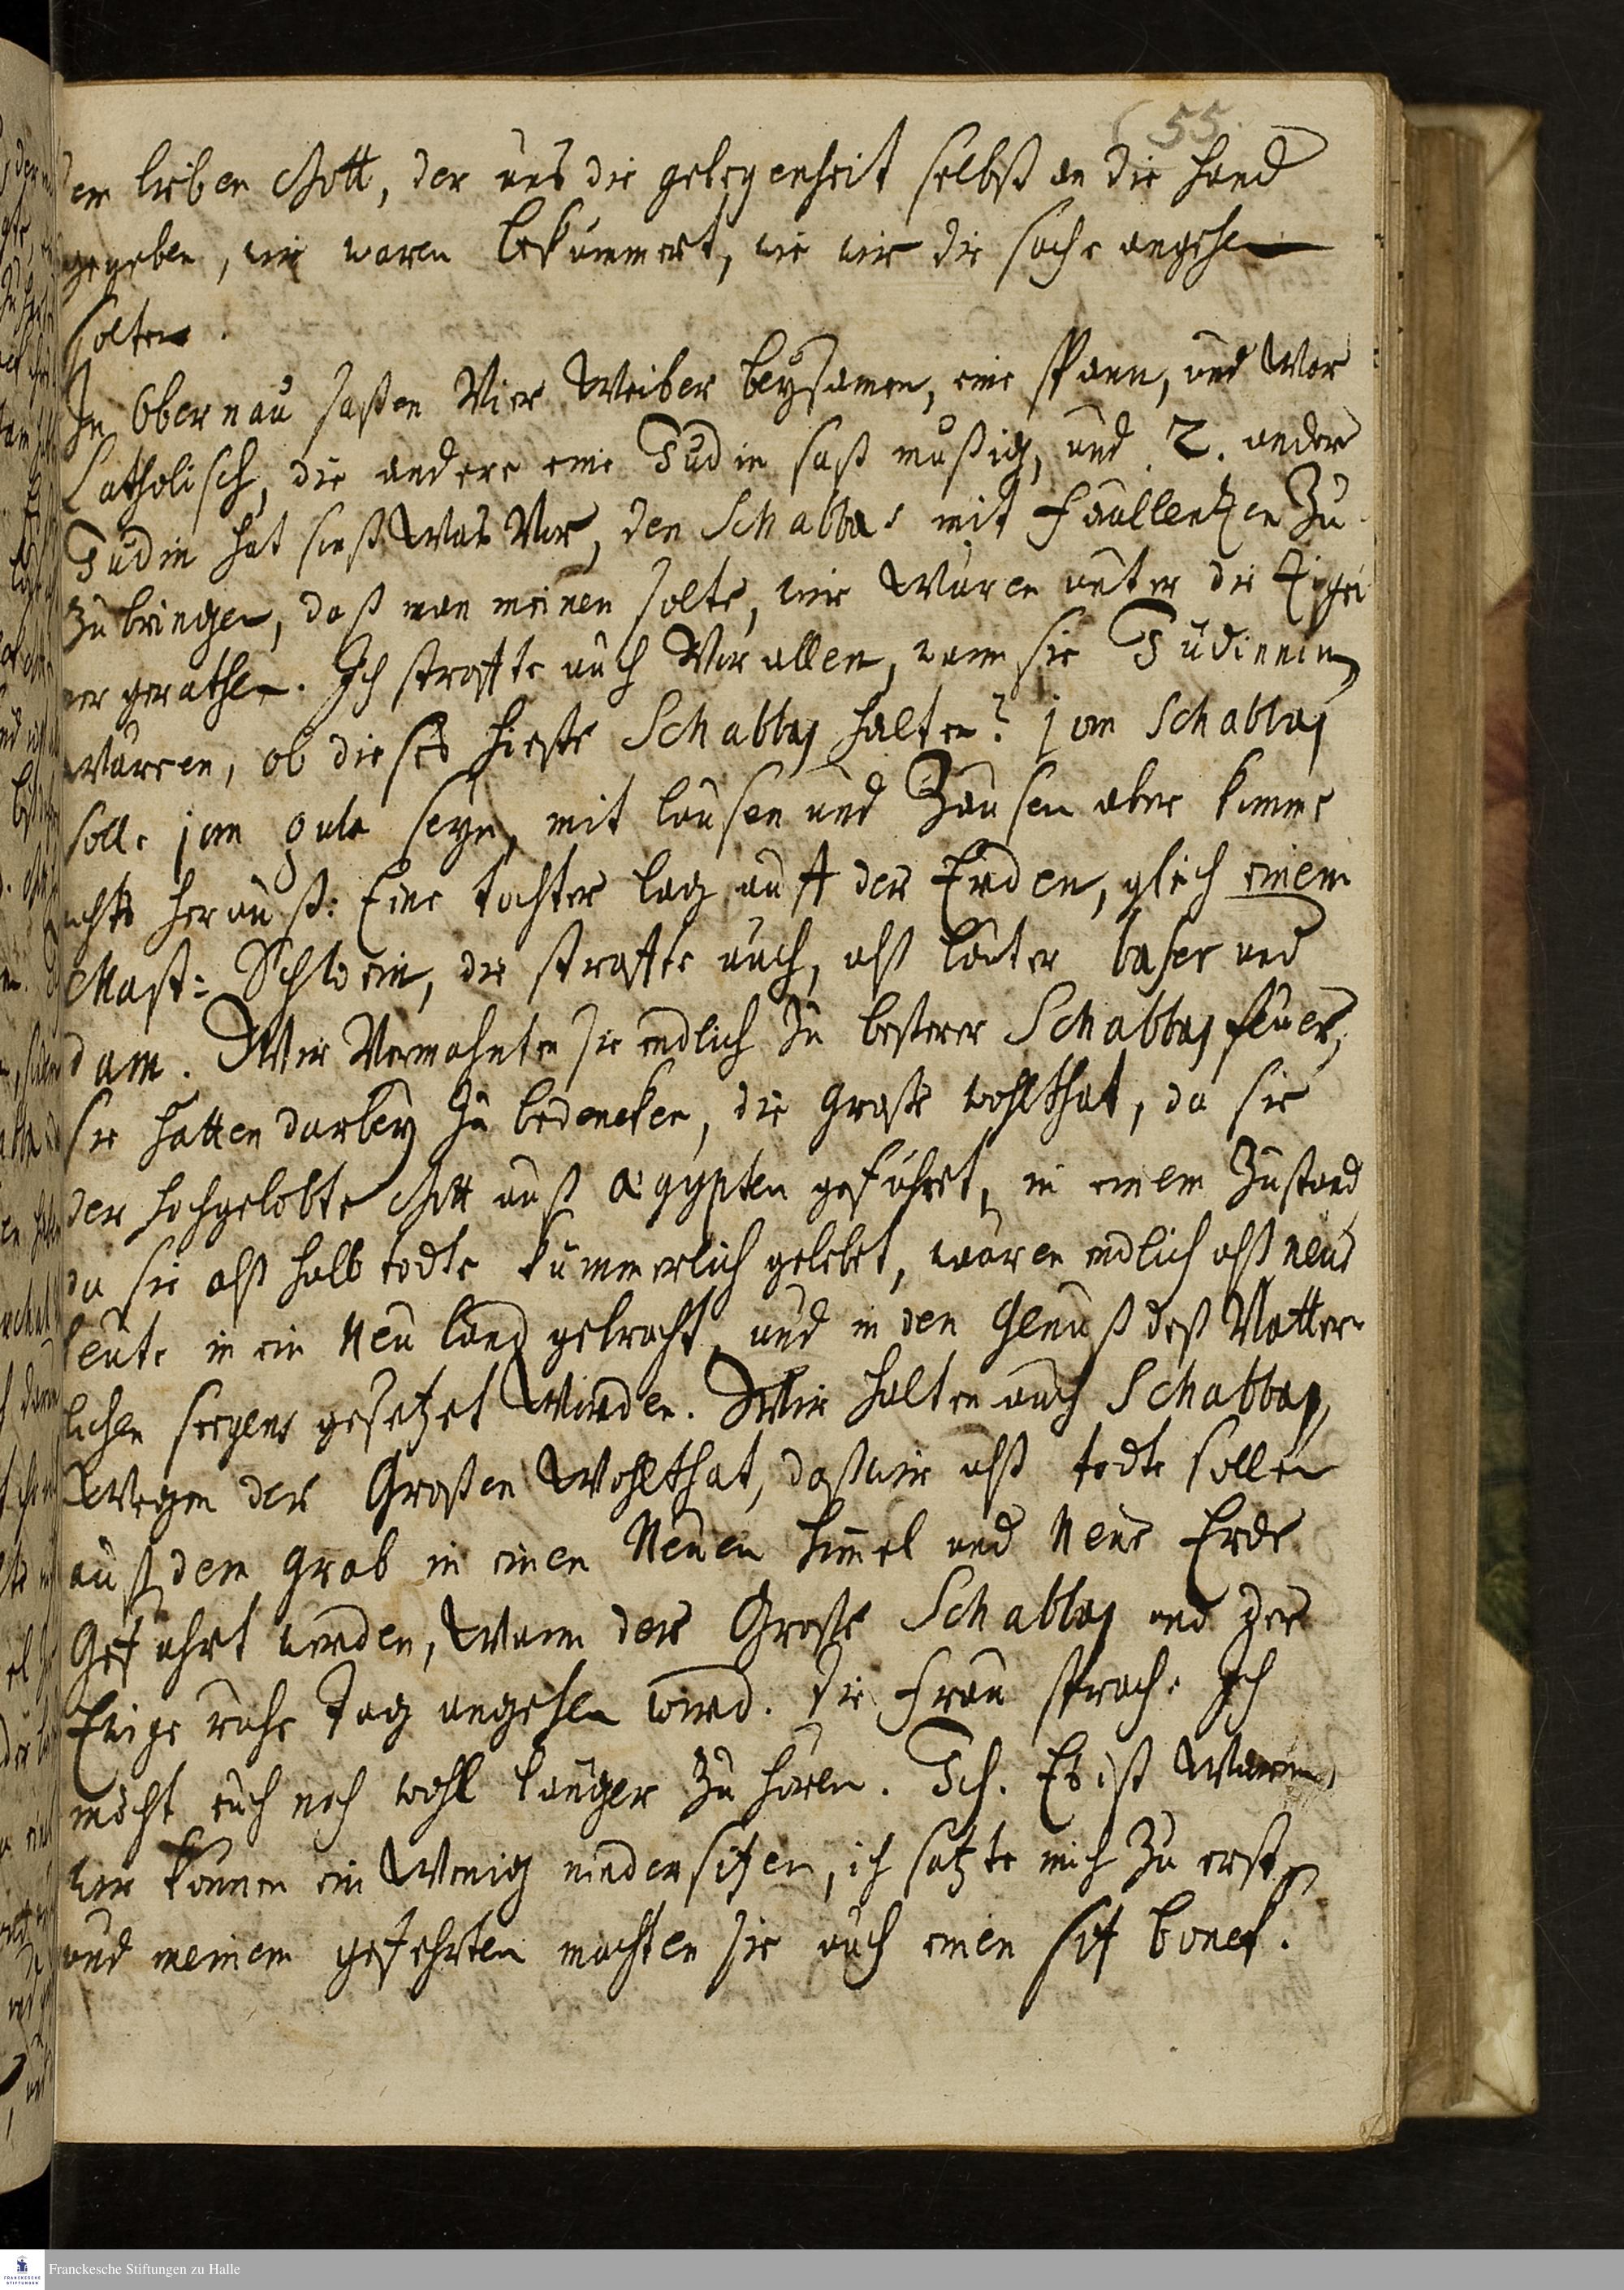 55.
dem lieben Gott, der uns die gelegenheit selbst an die hand
gegeben, wir waren bekümmert, wie wir die sache angehen
solten.
In Obernau saßen Vier Weiber beysamen, eine spann, und War
Catholisch, die andere eine Judin saß mußig, und 2. andere
Judin hat sonst Was Vor, den Schabbas mit faullentzen Zu
Zu bringen, daß man meinen solte, wir Wären unter die Zigei
ner gerathen. Ich straffte auch Vor allen, wann sie Judinnen
wären, ob dieses hieße Schabbas halten? jom Schabbas
solle jom guta seyn, mit lausen und Zausen aber komme
nichts herauß: Eine tochter lag auff der Erden, gleich einem
Mast: Schwein, die straffte auch, alß lauter baser und
dam. Wir Vermahnten sie endlich Zu besserer Schabbas feuer,
sie hatten darbey Zu bedencken, die große wohlthat, da sie
der hochgelobte Gott auß ægÿpten geführet, in einem Zustand
da sie alß halb todte kummerlich gelebet, wären endlich alß neue
leute in ein Neu land gebracht, und in den Genuß deß Vatter
lichen seegens gesetzet Worden. Wir halten auch Schabbas,
Wegen der Großen Wohlthat, daß wir alß todte sollen
auß dem grab in einen Neuen himel und Neue Erde
Geführt werden, Wann der Große Schabbas und der
Ewige ruhe tag angehen wird. Die frau sprach: Ich
möcht euch noch wohl länger Zu hören. Ich. Es ist Warm,
wir können ein Wenig nidersitzen, ich satzte mich Zu erst,
und meinem gefehrten machten sie auch einen sitz
Franckesche Stiftungen zu Halle